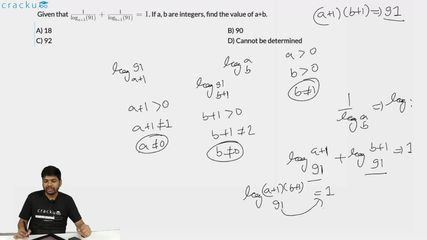 cracku
Given that 1/log_{a+1}(91) + 1/log_{b+1}(91) = 1. If a, b are integers, find the value of a+b.
A) 18 B) 90
C) 92 D) Cannot be determined
(a+1)(b+1) ⇒ 91
log_{a+1} 91
log_b a
a > 0
b > 0
b ≠ 1
log_{b+1} 91
a+1 > 0
a+1 ≠ 1
a ≠ 0
b+1 > 0
b+1 ≠ 2
b ≠ 0
1/log_b a ⇒ log
log_{91} a+1 + log_{91} b+1 ⇒ 1
log_{91} (a+1)(b+1) = 1
cracku